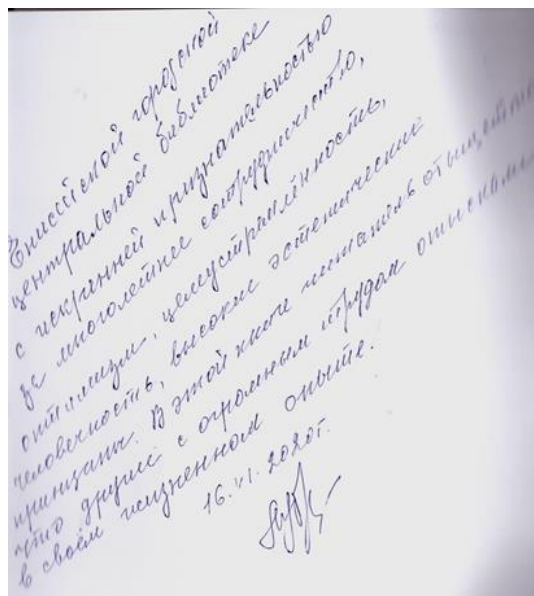 Енисейской городской
центральной библиотеке
с искренней признательностью
за многолетнее сотрудничество,
оптимизм, целеустремлённость,
человечность, высокие эстетические
принципы. В этой книге читатель отыщет то
что другие с огромным трудом отыскали
в своём жизненном опыте.
16.VI.2020г.